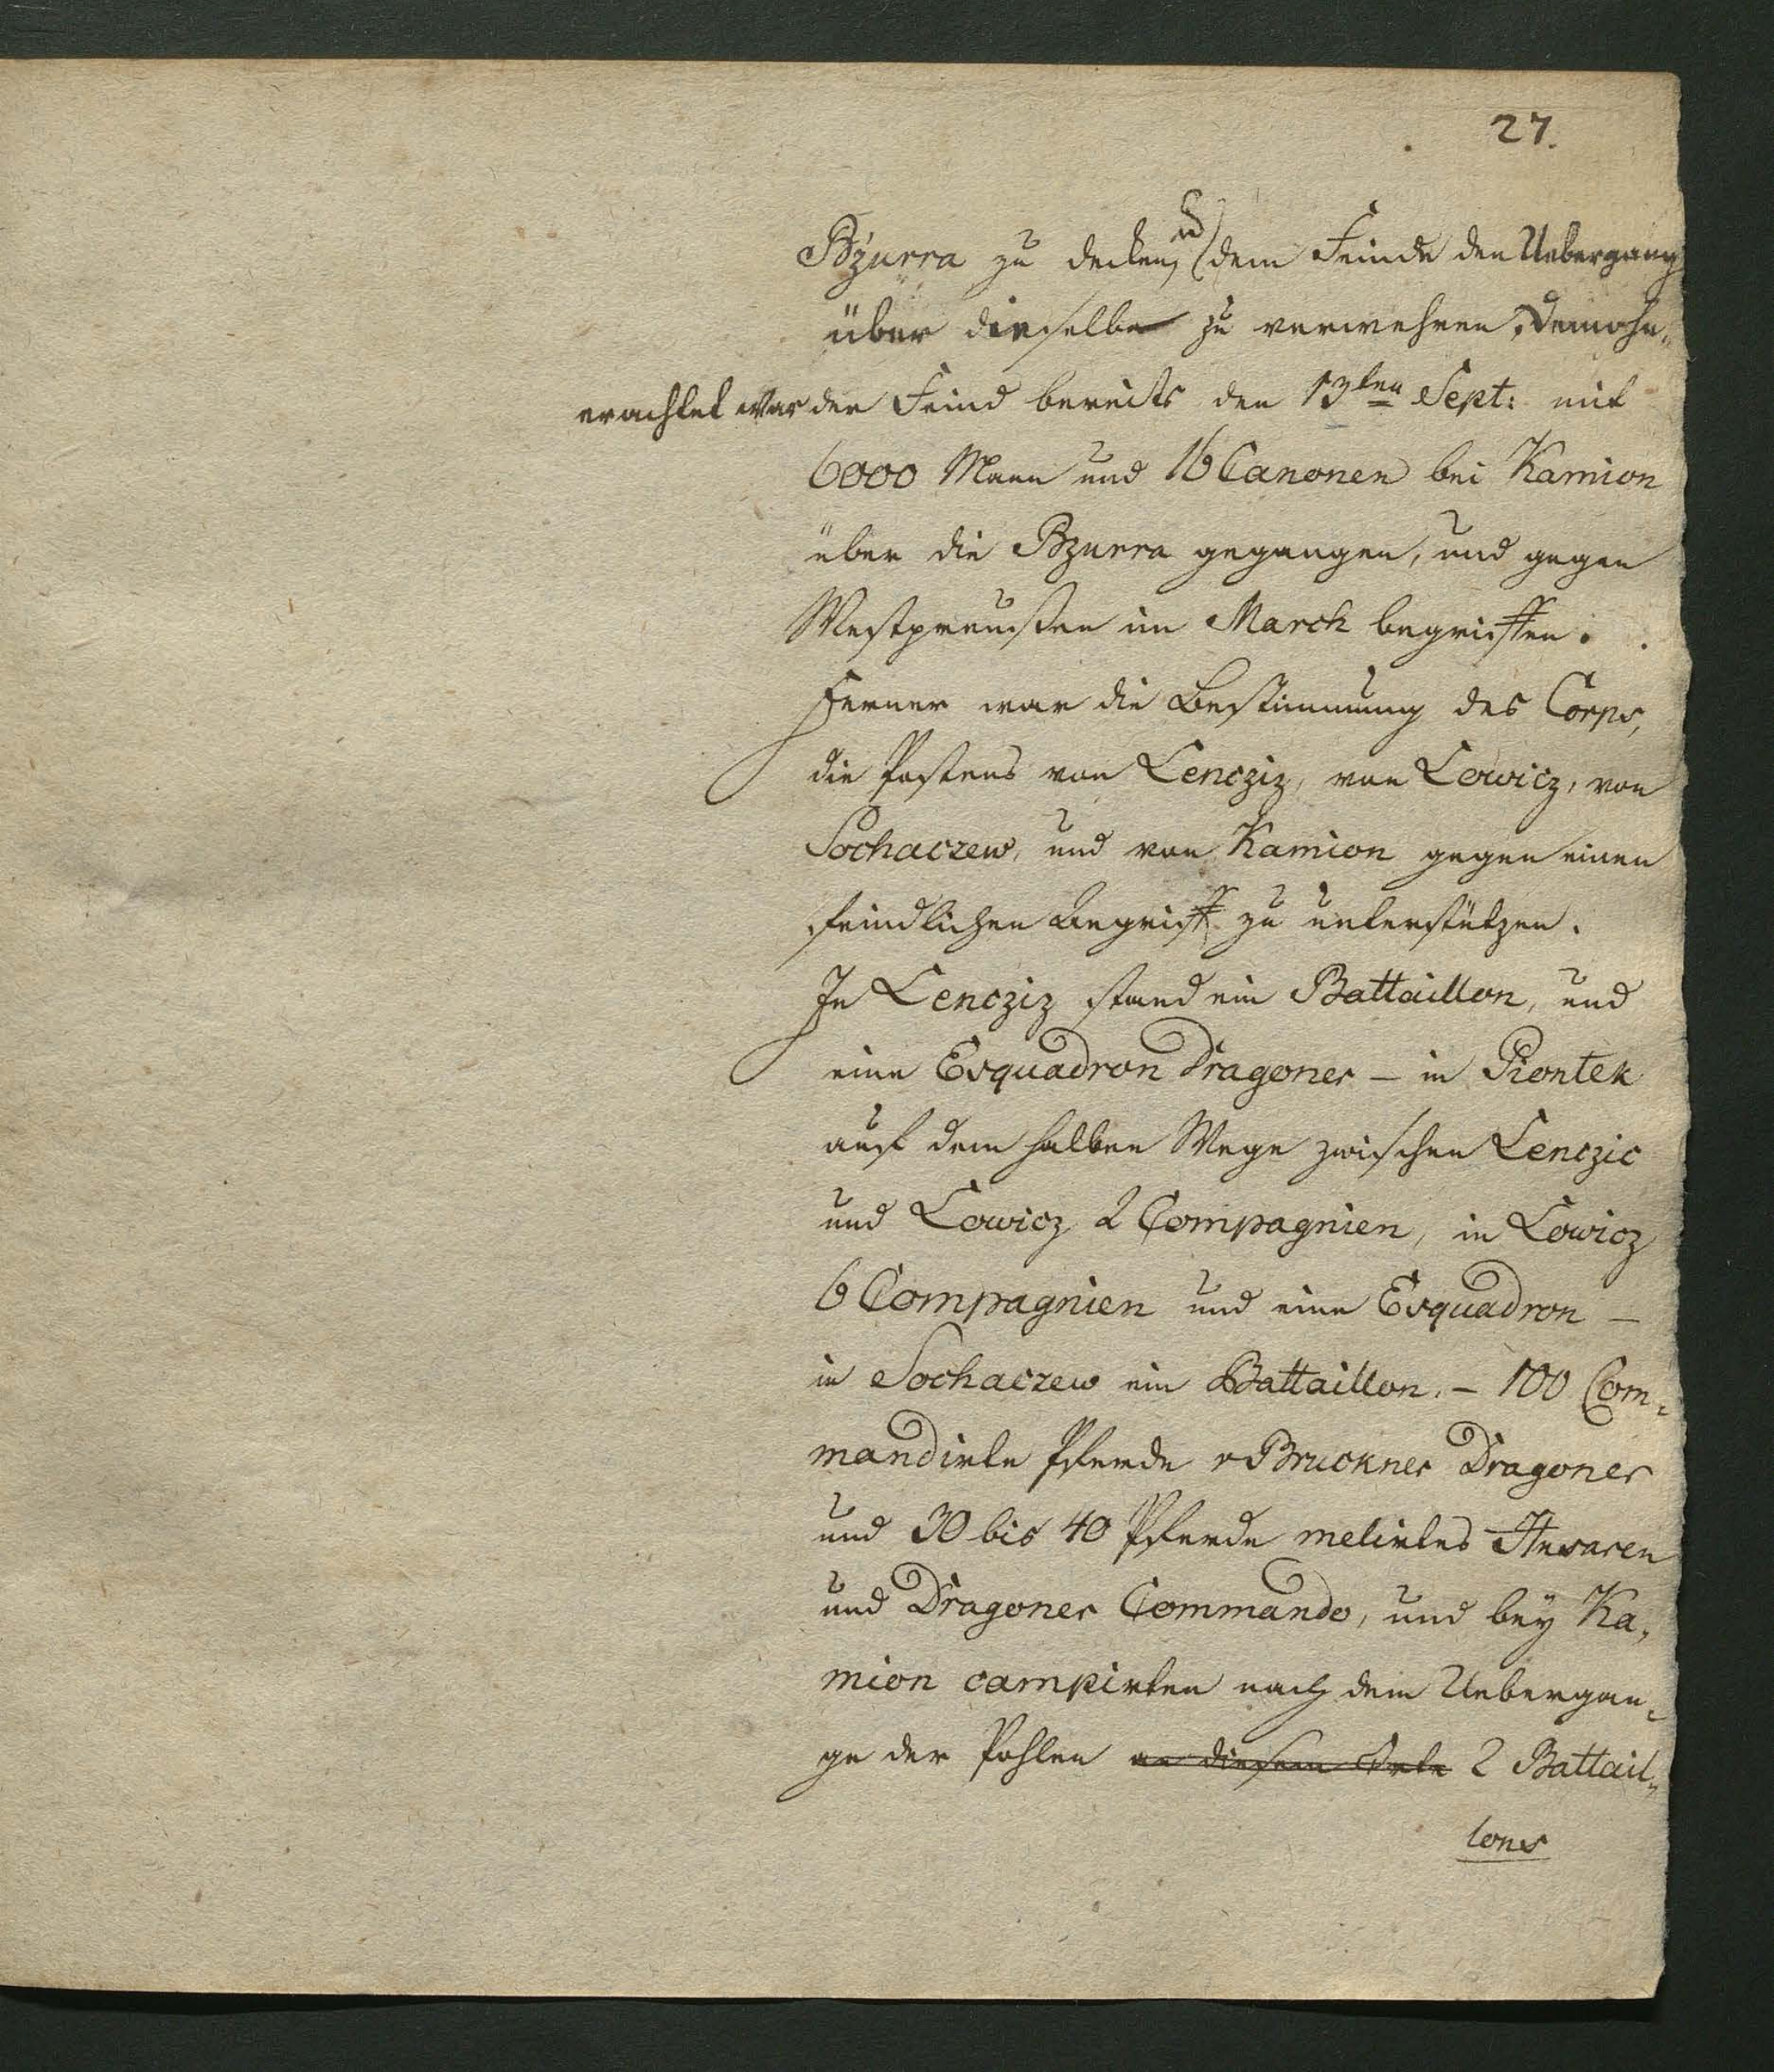 27.
Bzurra zu decken, und dem Feinde den Uebergang
über dieselbe zu verwehren, demohn„
erachtet war der Feind bereits den 13ten Sept: mit
6000 Mann und 16 Canonen bei Kamion
über die Bzurra gegangen, und gegen
Westpreußen im March begriffen.
Ferner war die Bestimmung des Corps,
die Postens von Lencziz, von Lowicz, von
Sochaczew, und von Kamion gegen einen
feindlichen Angriff zu unterstützen.
In Lencziz stand ein Battaillon, und
eine Esquadron Dragoner – in Piontek
auf dem halben Wege zwischen Lenczic
und Lowicz 2 Compagnien, in Lowicz
6 Compagnien und eine Esquadron –
in Sochaczew ein Battaillon. – 100 Com„
mandirte Pferde v Bruckner Dragoner
und 30 bis 40 Pferde melirtes Husaren
und Dragoner Commando, und bey Ka„
mion campirten nach dem Uebergan„
ge der Pohlen an diesem Orte 2 Battail„
lons